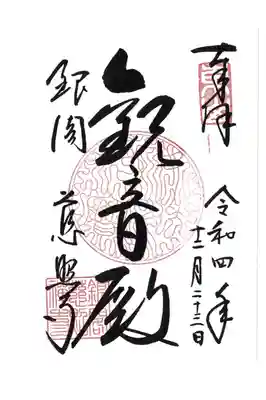 奉拝
令和四年
十二月二十二日
観音殿
銀閣
慈照寺